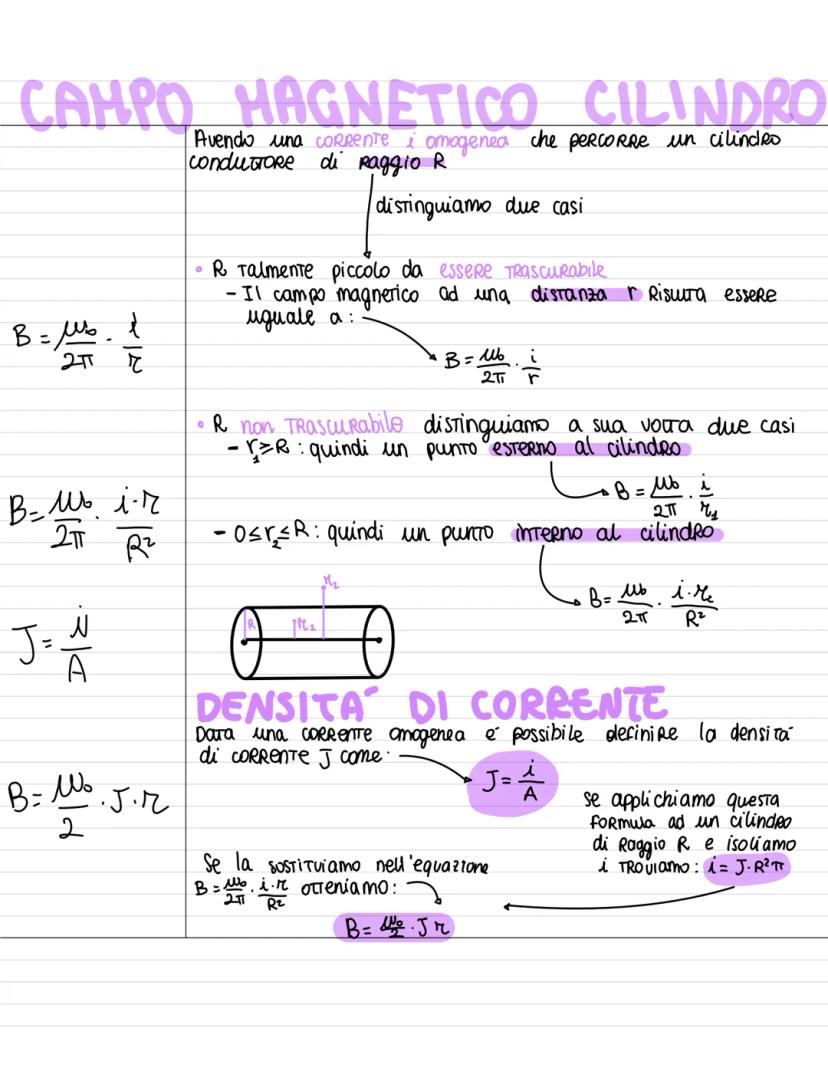 CAMPO MAGNETICO CILINDRO
Avendo una corrente i omogenea che percorre un cilindro
conduttore di raggio R
distinguiamo due casi
• R talmente piccolo da essere trascurabile
- Il campo magnetico ad una distanza r risulta essere
uguale a:
B = μ₀/2π · i/r
B = μ₀/2π · i/r
• R non trascurabile distinguiamo a sua volta due casi
- r₁≥R : quindi un punto esterno al cilindro
B = μ₀/2π · i/r₁
B = μ₀/2π · i·r/R²
- 0≤r₂≤R : quindi un punto interno al cilindro
B = μ₀/2π · i·r₂/R²
J = i/A
R r₂ r₂
DENSITA' DI CORRENTE
Data una corrente omogenea e' possibile definire la densita'
di corrente J come:
J = i/A
B = μ₀/2 · J · r
Se applichiamo questa
formula ad un cilindro
di raggio R e isoliamo
i troviamo : i = J·R²π
Se la sostituiamo nell'equazione
B = μ₀/2π · i·r/R² otteniamo :
B = μ₀/2 · J r